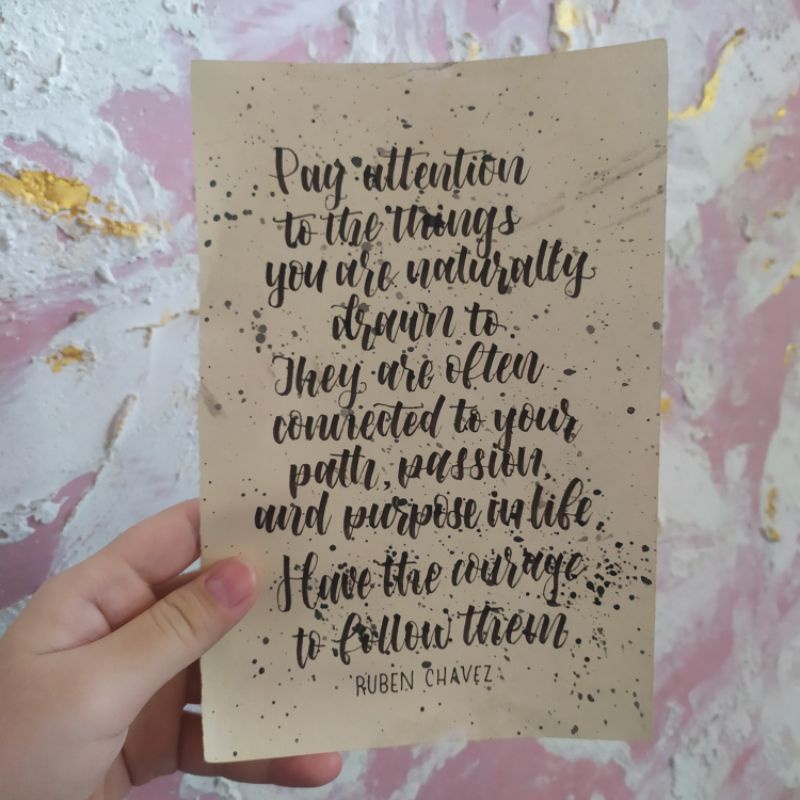 Pay attention
to the things
you are naturally
drawn to.
They are often
connected to your
path, passion,
and purpose in life.
Have the courage
to follow them.
RUBEN CHAVEZ